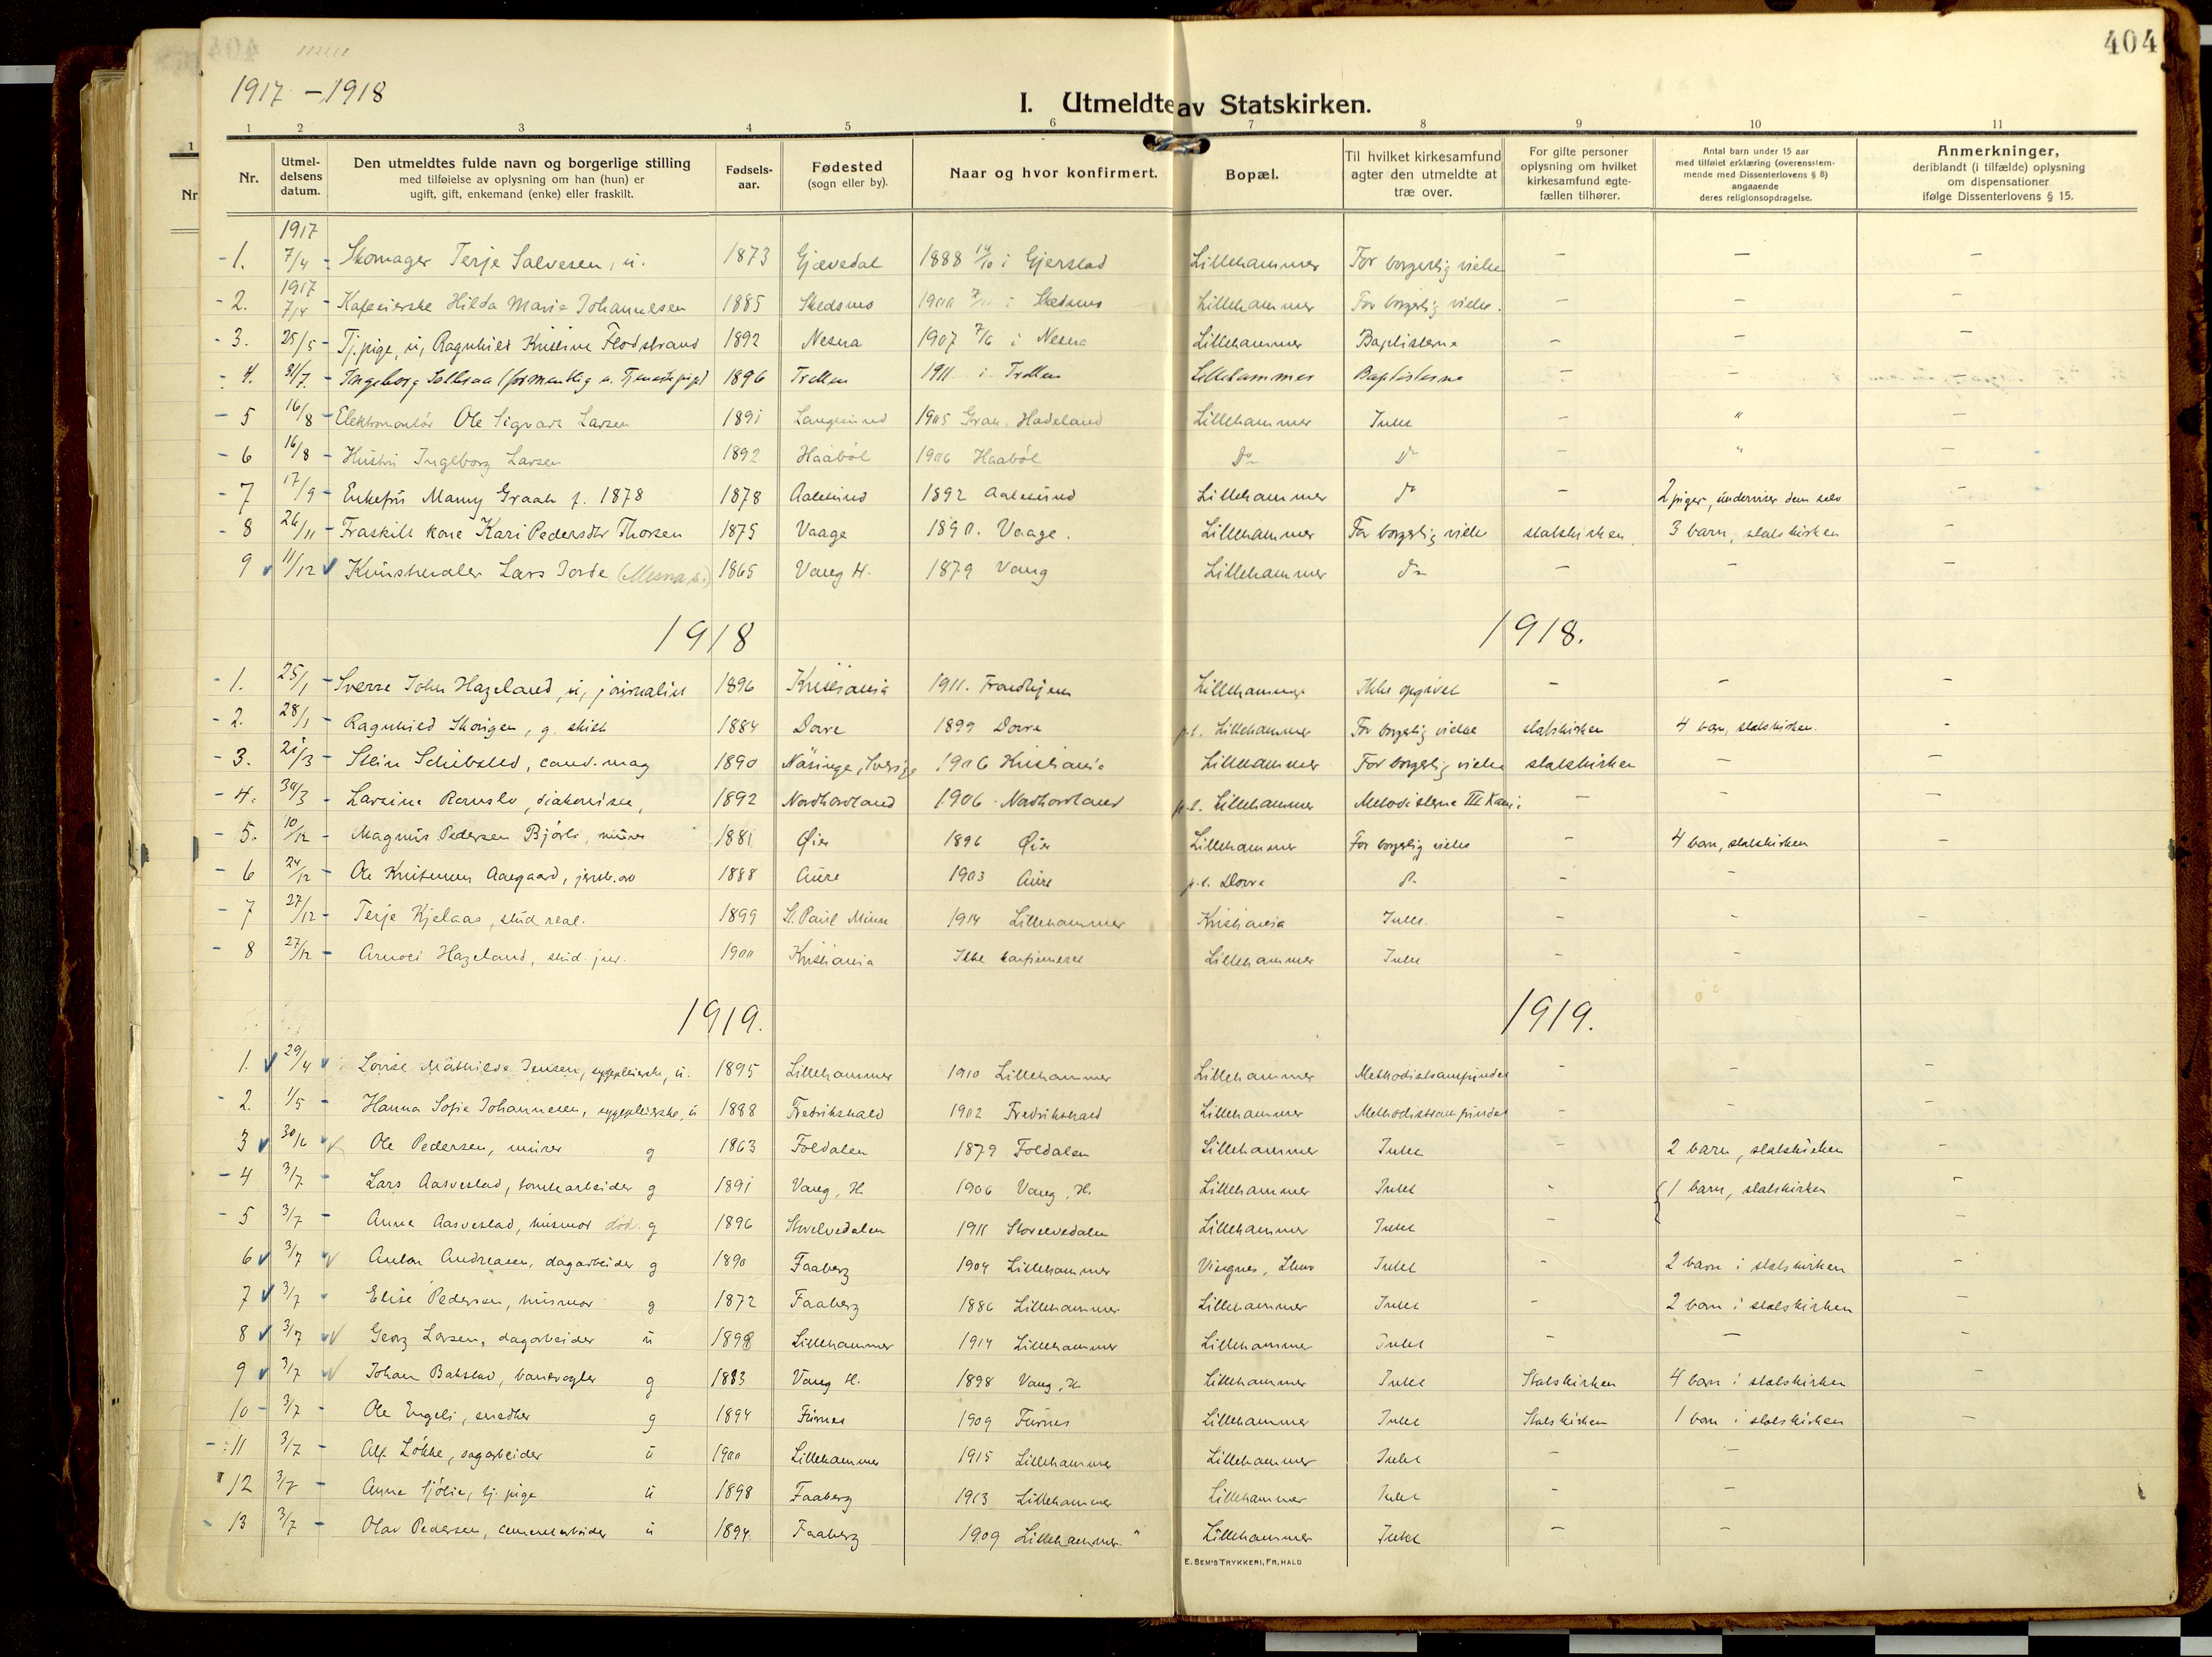 404
1917 - 1918
I. Utmeldte av Statskirken.
1 2 3 4 5 6 7 8 9 10 11
Nr. | Utmeldelsens datum. | Den utmeldtes fulde navn og borgerlige stilling med tilføielse av oplysning om han (hun) er ugift, gift, enkemand (enke) eller fraskilt. | Fødselsaar. | Fødested (sogn eller by). | Naar og hvor konfirmert. | Bopæl. | Til hvilket kirkesamfund agter den utmeldte at træ over. | For gifte personer oplysning om hvilket kirkesamfund egtefællen tilhører. | Antal barn under 15 aar med tilføiet erklæring (overensstemmende med Dissenterlovens § 8) angaaende deres religionsopdragelse. | Anmerkninger, deriblandt (i tilfælde) oplysning om dispensationer ifølge Dissenterlovens § 15.
1. 1917 7/4 Skomager Terje Salvesen, u. 1873 Gjævedal 1888 14/10 i Gjerstad Lillehammer For borgerlig vielse - - -
2. 1917 7/4 Hilda Marie Johannesen 1885 Skedsmo 1900 i Skedsmo Lillehammer For borgerlig vielse. - - -
3. 25/5 Tj. pige, u, Ragnhild Kristine Flodstrand 1892 Nesna 1907 7/6 i Nesna Lillehammer Baptisterne - - -
4. 31/7 Ingeborg (formentlig u. Tjenestepige) 1896 1911 i Lillehammer Baptisterne - - -
5 16/8 Elektromontør Ole Sigvart Larsen 1891 Langesund 1905 Gran. Hadeland Lillehammer Intet - " -
6 16/8 Hustru Ingeborg Larsen 1892 Haabøl 1906 Haabøl Do do - " -
7 17/9 Enkefru Manny Graah f. 1878 1878 Aalesund 1892 Aalesund Lillehammer do - 2 piger, underviser dem selv -
8 26/11 Fraskilt kone Kari Pedersdtr Thorsen 1875 Vaage 1890. Vaage. Lillehammer For borgerlig vielse statskirken. 3 barn, statskirken -
9 11/12 Kunstmaler Lars Jorde 1865 Vang H. 1879 Vang Lillehammer do - - -
1918 1918.
1. 25/1 Sverre John Hageland, u, journalist 1896 Kristiania 1911. Trondhjem Lillehammer Ikke opgivet - - -
2. 28/1 Ragnhild Skorigen, g. skilt 1884 Dovre 1899 Dovre p.t. Lillehammer For borgerlig vielse statskirken 4 barn, statskirken. -
3. 21/3 Stein Schibsted, cand. mag 1890 Näsinge, Sverige 1906 Kristiania Lillehammer For borgerlig vielse statskirken - -
4. 30/3 Larsine, diakonisse, 1892 Nordhordland 1906. Nordhordland p.t. Lillehammer Metodisterne - - -
5. 10/12 Magnus Pedersen Bjørli, murer 1881 Øier 1896 Øier Lillehammer For borgerlig vielse - 4 barn, statskirken -
6 24/12 Ole Kristensen Aargaard, 1888 Aure 1903 Aure p.t. Dovre do - -
7 27/12 Terje Kjelaas, stud. real. 1899 St. Paul Minn 1914 Lillehammer Kristiania Intet. - - -
8 27/12 Hageland, stud. jur. 1900 Kristiania Ikke konfirmeret Lillehammer Intet - -
1919. 1919.
1. 29/4 Lovise Mathilde Jensen, sygepleierske, u. 1895 Lillehammer 1910 Lillehammer Lillehammer Methodistsamfundet - - -
2. 1/5 Hanna Sofie Johannesen, sygepleierske, u 1888 Fredrikshald 1902 Fredrikshald Lillehammer Methodistsamfundet - - -
3 30/6 Ole Pedersen, murer g 1863 Foldalen 1879 Foldalen Lillehammer Intet - 2 barn, statskirken -
4 3/7 Lars Aasvestad, tomtearbeider g 1891 Vang, H. 1906 Vang, H. Lillehammer Intet - 1 barn, statskirken -
5 3/7 Anna Aasvestad, husmor død. g 1896 Storelvedalen 1911 Storelvedalen Lillehammer Intet - -
6 3/7 Anton Andreasen, dagarbeider g 1890 Faaberg 1904 Lillehammer Vingnes, Lhmr Intet - 2 barn i statskirken -
7 3/7 Elise Pedersen, husmor g 1872 Faaberg 1886 Lillehammer Lillehammer Intet - 2 barn i statskirken -
8 3/7 Georg Larsen, dagarbeider u 1898 Lillehammer 1914 Lillehammer Lillehammer Intet - - -
9 3/7 Johan Bakstad, banevogter g 1883 Vang H. 1898 Vang, H. Lillehammer Intet Statskirken 4 barn i statskirken -
10 3/7 Ole Engeli, snedker g 1894 Furnes 1909 Furnes Lillehammer Intet Statskirken 1 barn i statskirken -
11 3/7 Alf Løkke, sagarbeider u 1900 Lillehammer 1915 Lillehammer Lillehammer Intet - -
12 3/7 Anna Sjølie, tj. pige u 1898 Faaberg 1913 Lillehammer Lillehammer Intet - -
13 3/7 Olav Pedersen, cementarbeider u 1894. Faaberg 1909 Lillehammer Lillehammer Intet - -
E. SEM'S TRYKKERI, FR.HALD